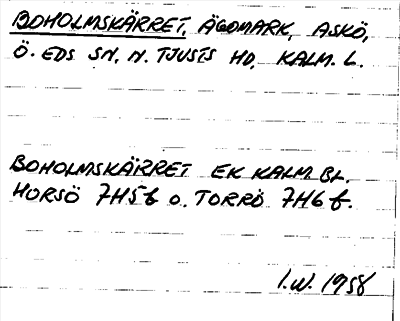 BOHOLMSKÄRRET, ÄGOMARK, ASKÖ,
Ö. EDS SN, N. TJUSTS HD, KALM. L.
BOHOLMSKÄRRET EK KALM. BL.
HORSÖ 7H5b O. TORRÖ 7H6b.
I.W. 1958